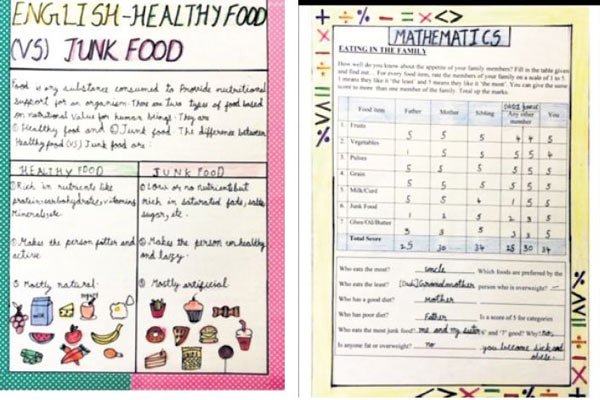 ENGLISH-HEALTHY FOOD
(VS) JUNK FOOD
Food is any substance consumed to Provide nutritional
support for an organism. There are two types of food based
on nutritional value for human beings. They are
① Healthy food and ② Junk food. The difference between
Healthy food (VS) Junk food are:
HEALTHY FOOD
① Rich in nutrients like
protein, carbohydrate, vitamins
Minerals etc.
② Makes the person fitter and
active.
③ Mostly natural.
JUNK FOOD
① Low or no nutrients but
rich in saturated fats, salts
sugar, etc.
② Makes the person unhealthy
and lazy.
③ Mostly artificial.
MATHEMATICS
EATING IN THE FAMILY
How well do you know about the appetite of your family members? Fill in the table given
and find out... For every food item, rate the members of your family on a scale of 1 to 5
1 means they like it 'the least' and 5 means they like it 'the most'. You can give the same
score to more than one member of the family. Total up the marks.
Food item Father Mother Sibling Any other member You
1. Fruits 5 5 5 4 4 5
2. Vegetables 1 5 5 5 5 4
3. Pulses 5 5 5 5 5 5
4. Grain 5 5 5 5 5 5
5. Milk/Curd 5 5 4 1 5 5
6. Junk Food 1 2 5 2 3 5
7. Ghee/Oil/Butter 3 3 5 3 3 5
Total Score 25 30 34 25 30 34
Who eats the most? uncle Which foods are preferred by the
Who eats the least? Grandmother person who is overweight? –
Who has a good diet? Mother
Who has poor diet? Father Is a score of 5 for categories
Who eats the most junk food? me and my sister '6' and '7' good? Why? no,
Is anyone fat or overweight? no you become sick and
obese.